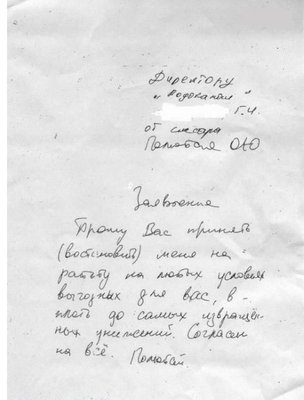 Директору
„Водоканал"
Г.Ч.
от слесаря
Полюбоя ОЮ
Заявление
Прошу Вас принять
(востоновить) меня на
работу на любых условиях
выгодных для вас, в-
плоть до самых извращён-
ных унижений. Согласен
на всё. Полюбой.